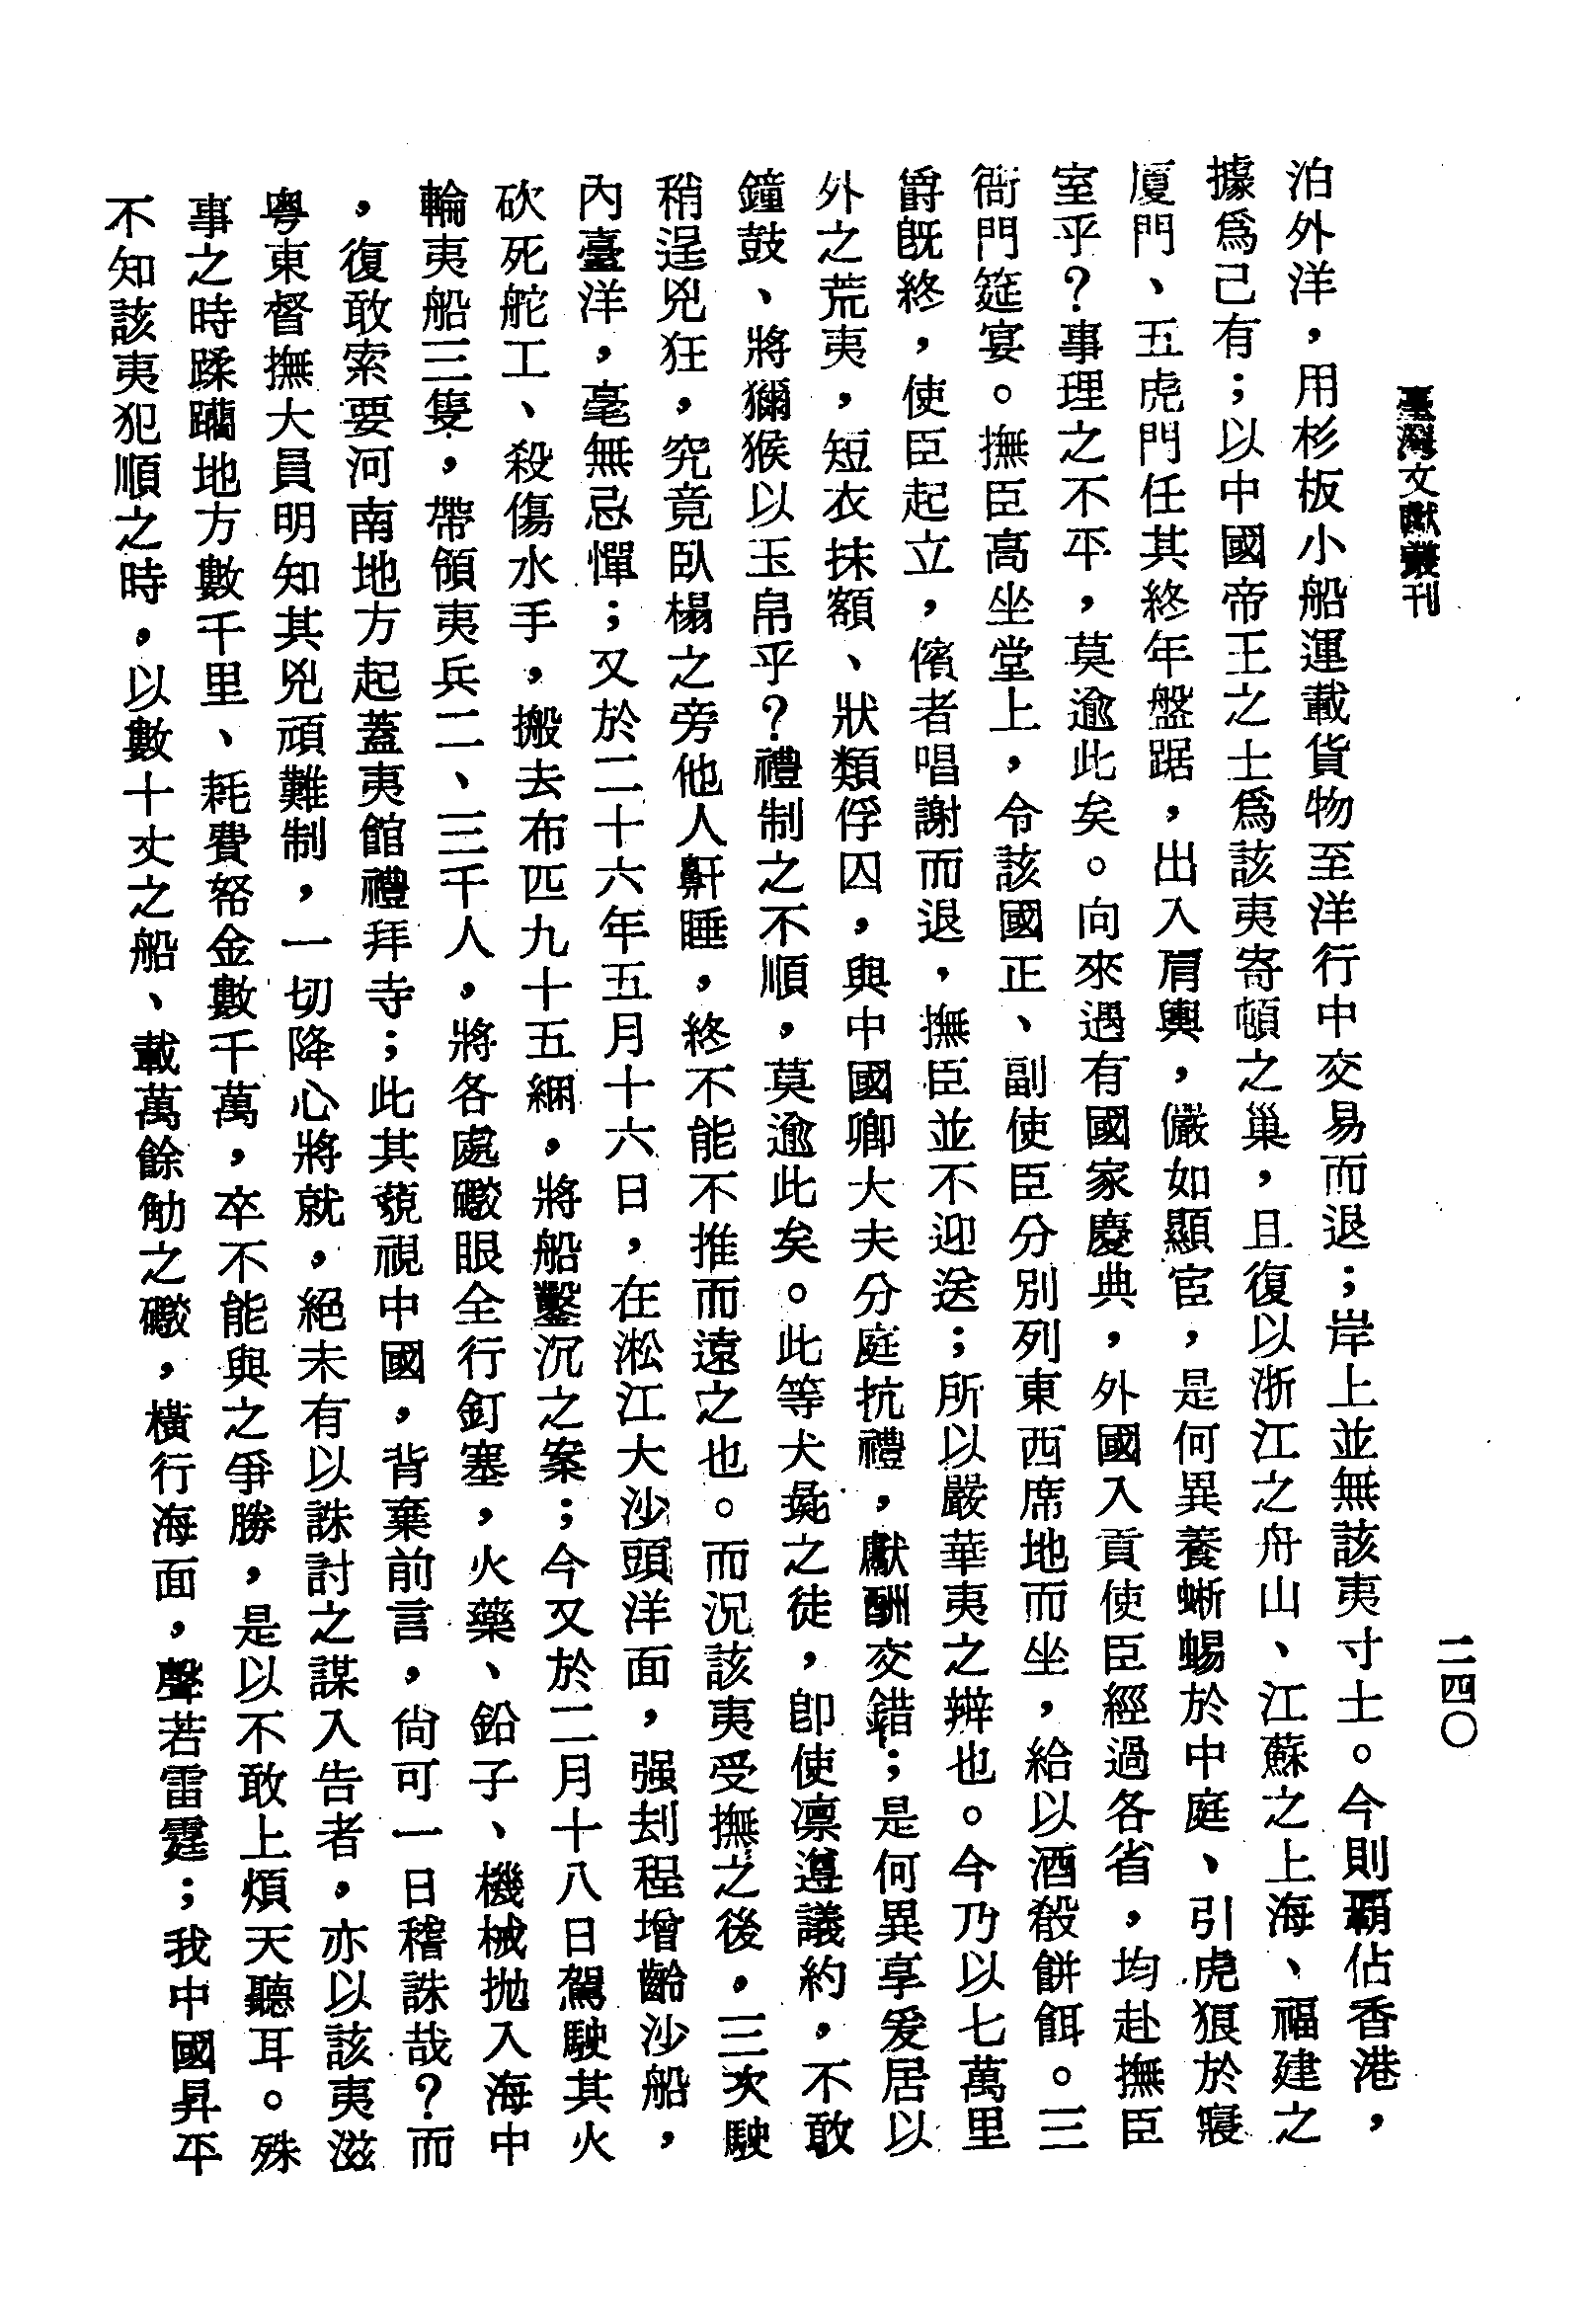 臺灣文獻叢刊
二四〇
泊外洋，用杉板小船運載貨物至洋行中交易而退；岸上並無該夷寸土。今則霸佔香港，
據爲己有；以中國帝王之土爲該夷寄頓之巢，且復以浙江之舟山、江蘇之上海、福建之
廈門、五虎門任其終年盤踞，出入肩輿，儼如顯宦，是何異養蜥蜴於中庭、引虎狼於寢
室乎？事理之不平，莫逾此矣。向來遇有國家慶典，外國入貢使臣經過各省，均赴撫臣
衙門筵宴。撫臣高坐堂上，令該國正、副使臣分別列東西席地而坐，給以酒殽餅餌。三
爵既終，使臣起立，儐者唱謝而退，撫臣並不迎送；所以嚴華夷之辨也。今乃以七萬里
外之荒夷，短衣抹額、狀類俘囚，與中國卿大夫分庭抗禮，獻酬交錯；是何異享爰居以
鐘鼓、將獼猴以玉帛乎？禮制之不順，莫逾此矣。此等犬彘之徒，卽使凛遵議約，不敢
稍逞兇狂，究竟臥榻之旁他人鼾睡，終不能不推而遠之也。而況該夷受撫之後，三次駛
內臺洋，毫無忌憚；又於二十六年五月十六日，在淞江大沙頭洋面，强刦程增齡沙船，
砍死舵工、殺傷水手，搬去布匹九十五綑，將船鑿沉之案；今又於二月十八日駕駛其火
輪夷船三隻，帶領夷兵二、三千人，將各處礮眼全行釘塞，火藥、鉛子、機械抛入海中
，復敢索要河南地方起蓋夷館禮拜寺；此其藐視中國，背棄前言，尙可一日稽誅哉？而
粤東督撫大員明知其兇頑難制，一切降心將就，絕未有以誅討之謀入告者，亦以該夷滋
事之時蹂躪地方數千里、耗費帑金數千萬，卒不能與之爭勝，是以不敢上煩天聽耳。殊
不知該夷犯順之時，以數十丈之船、載萬餘觔之礮，橫行海面，聲若雷霆；我中國昇平